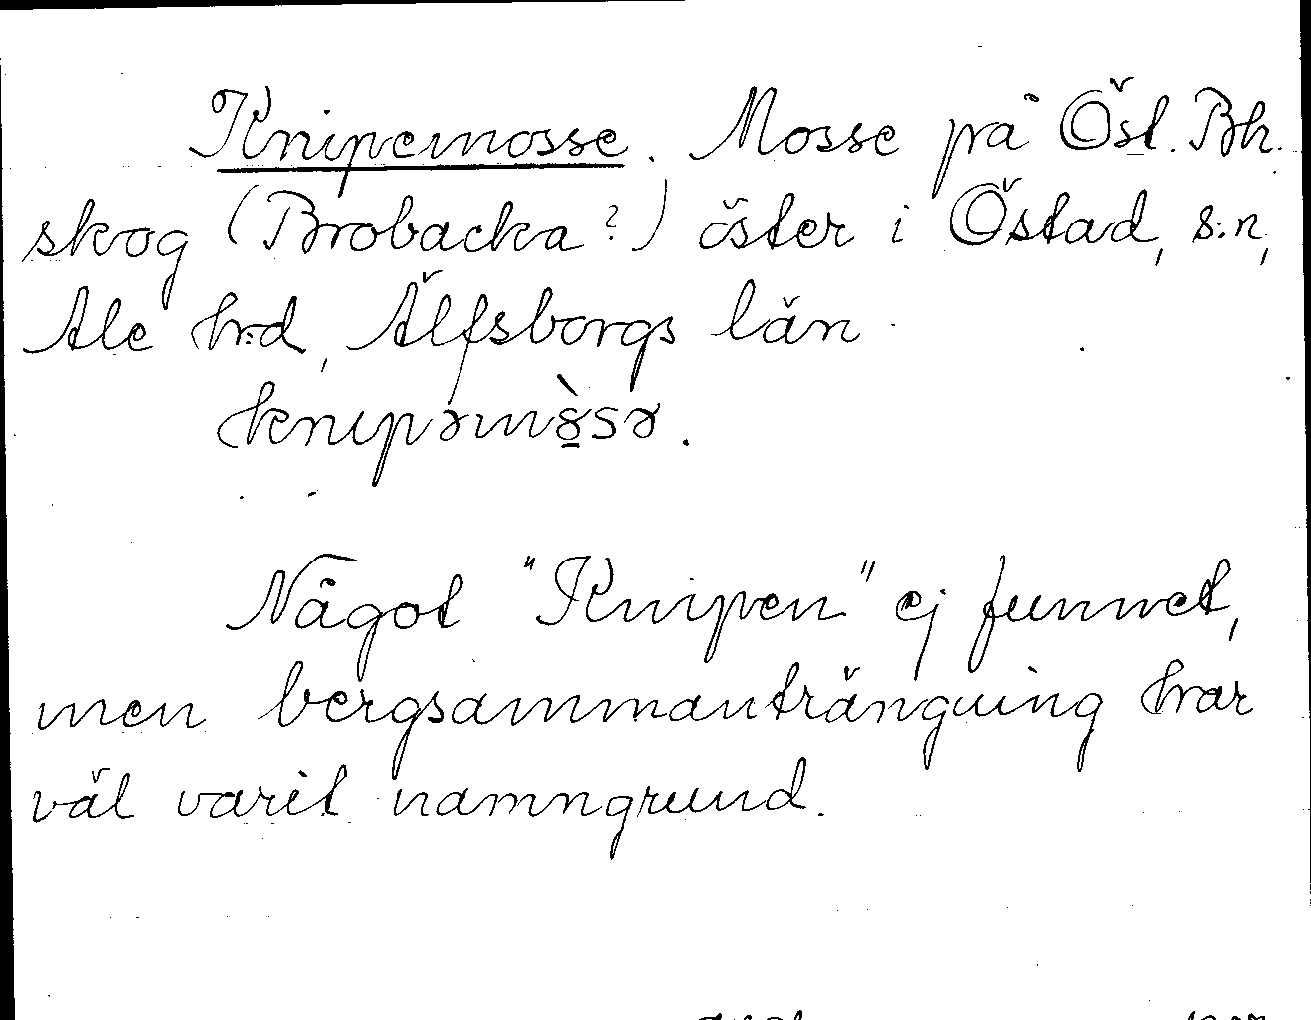 Knipemosse. Mosse på Östl. Bh.
skog (Brobacka?) öster i Östad, s:n,
Ale hrd, Älfsborgs län
knipəmò̤sə.
Något "Knipen" ej funnet,
men bergsammanträngning har
väl varit namngrund.